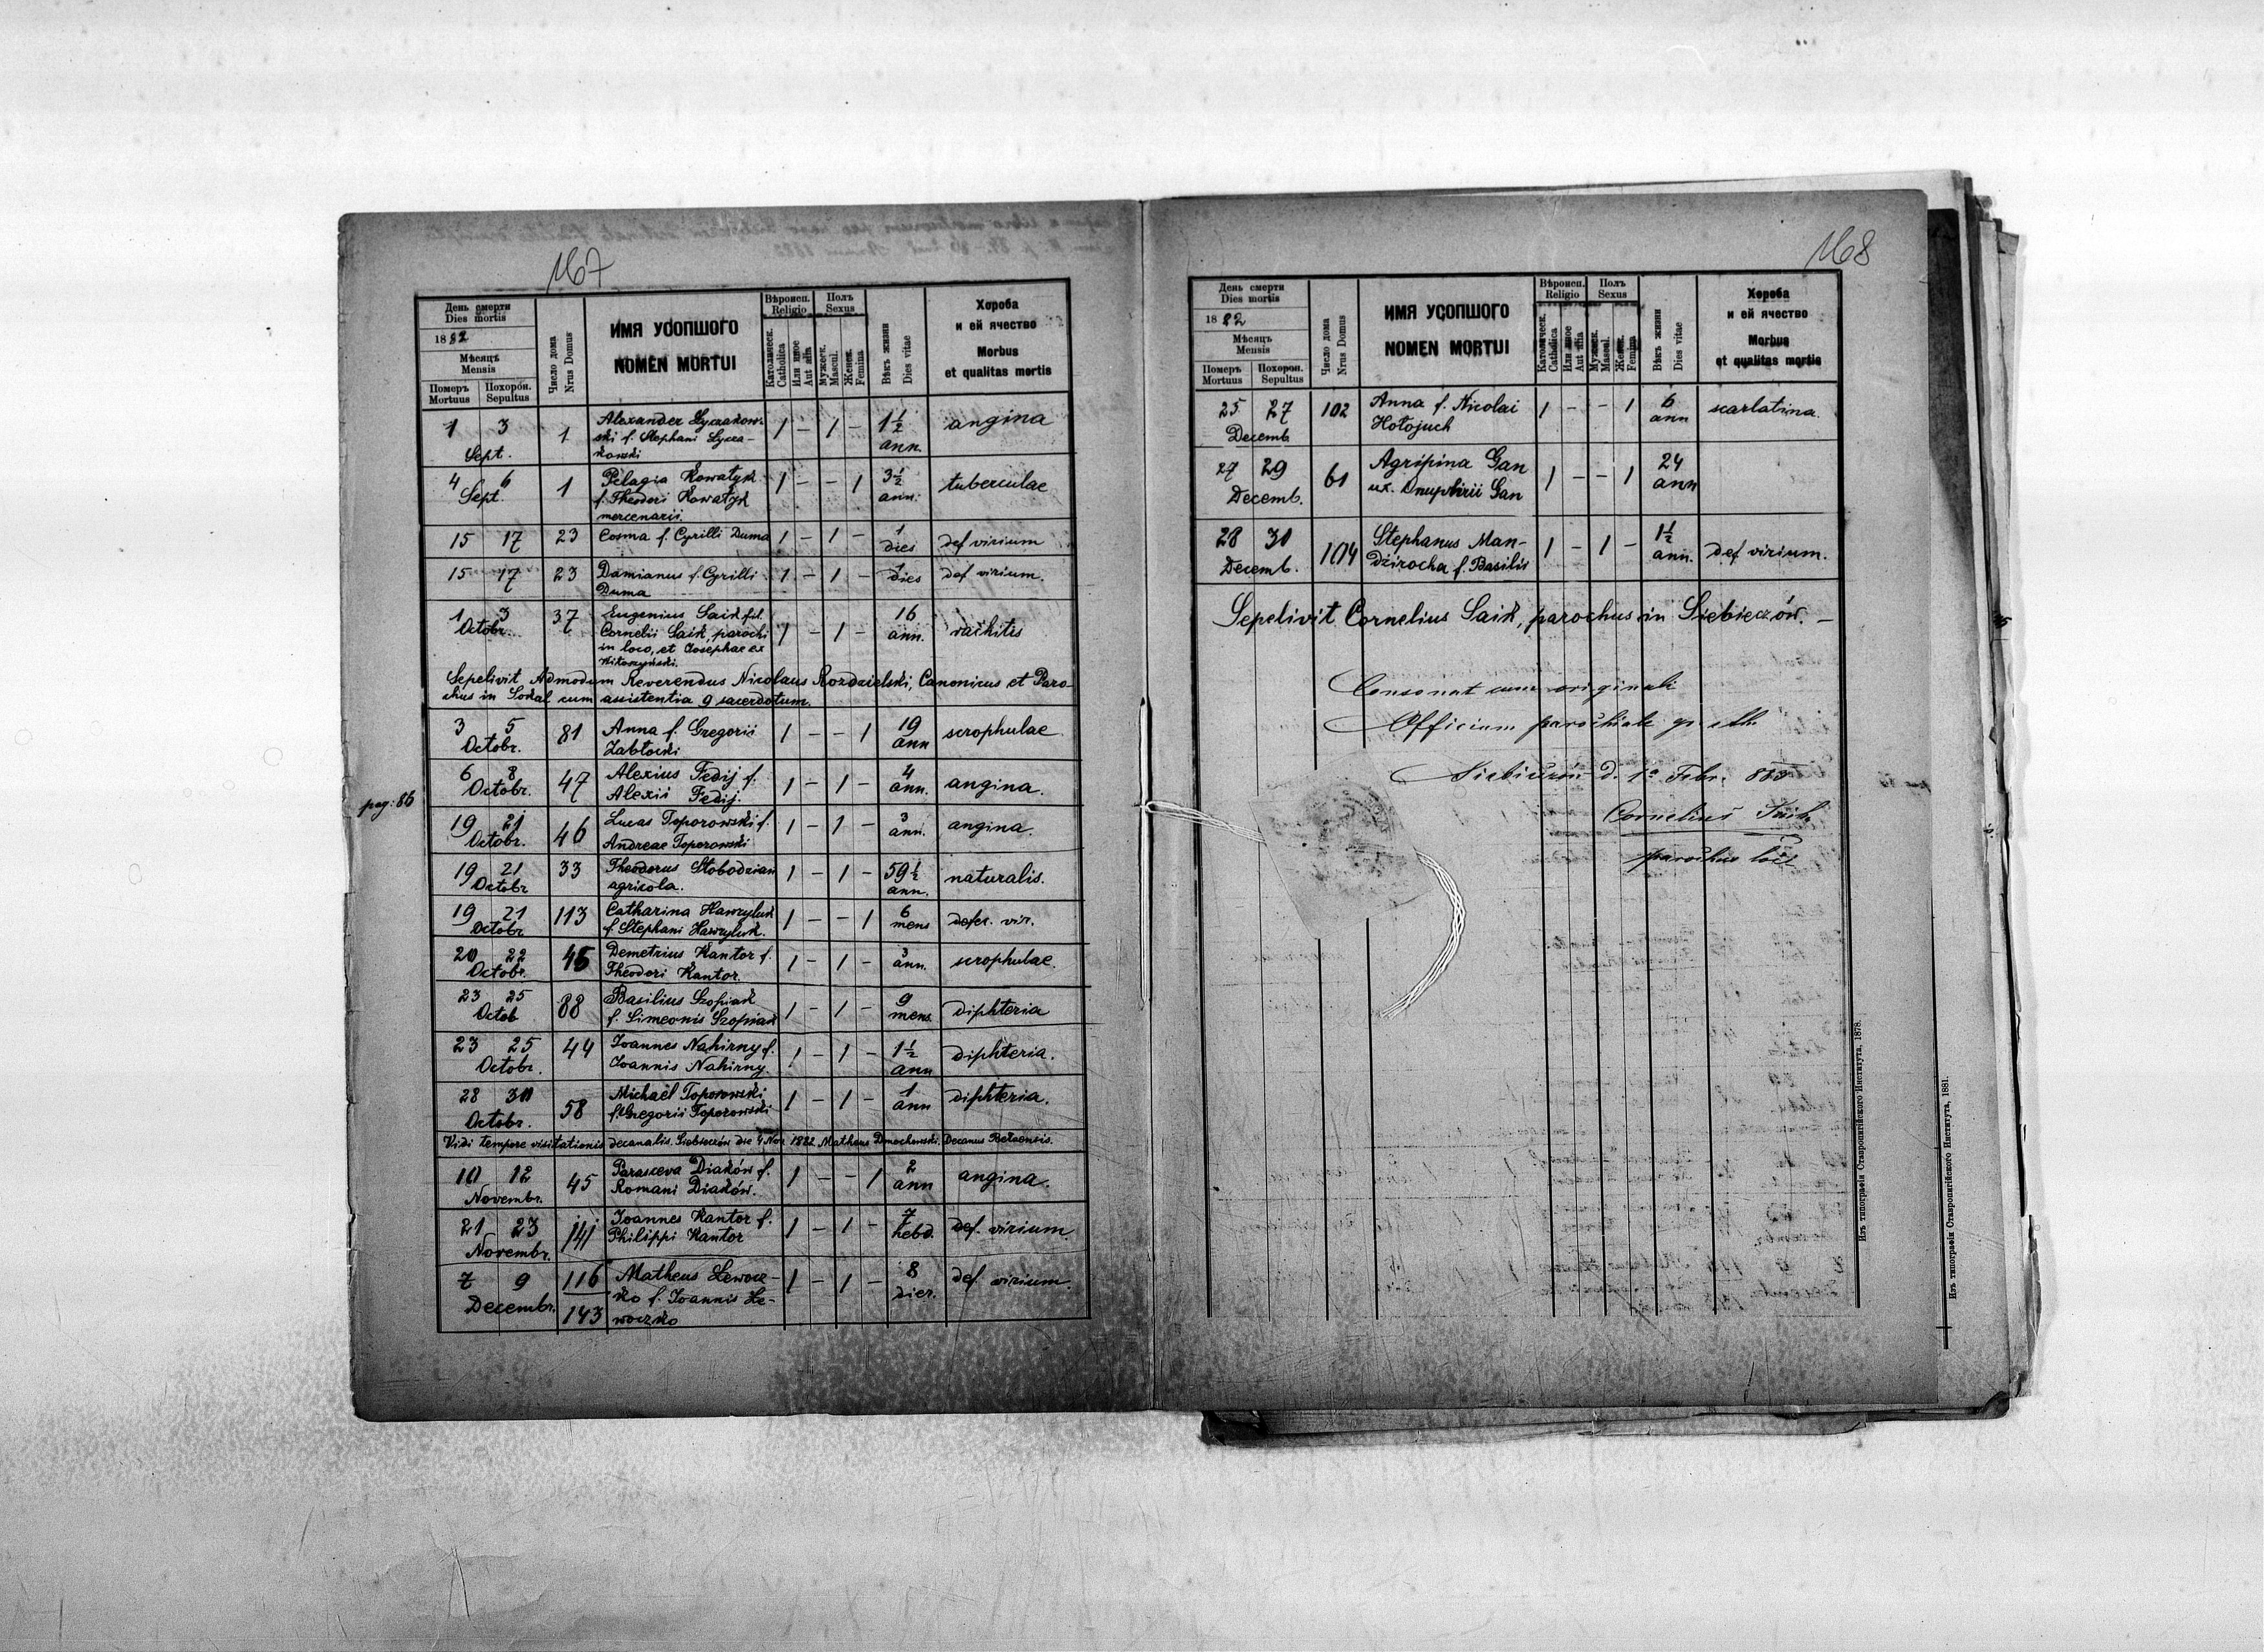 167
День смерти
Dies mortis
1882
Мѣсяцъ
Mensis
Померъ Похорон.
Mortuus Sepultus
Число дома
Nrus Domus
ИМЯ УСОПШОГО
NOMEN MORTUI
Вѣроисп.
Religio
Католическ.
Catholica
Или иное
Aut alia
Полъ
Sexus
Мужеск.
Mascul.
Женск.
Femina
Вѣкъ жизни
Dies vitae
Хороба
и ей ячество
Morbus
et qualitas mortis
1 3 Sept. 1 Alexander Łyczakow-
ski f. Stephani Łycza-
kowski 1 – 1 – 1½ ann. angina
4 6 Sept 1 Pelagia Kowałyk
f. Theodori Kowałyk
mercenarii. 1 – – 1 3½ ann. tuberculae
15 17 23 Cosma f. Cyrilli Duma 1 – 1 – 1 dies def virium
15 17 23 Damianus f. Cyrilli
Duma 1 – 1 – 1 dies def virium.
1 3 Octobr. 37 Eugenius Saik fil.
Cornelii Saik, parochi
in loco, et Josephae ex
Witoszyński. 1 – 1 – 16 ann. rachitis
Sepelivit Admodum Reverendus Nicolaus Rozdzielski, Canonicus et Paro-
chus in Sokal cum assistentia 9 sacerdotum.
3 5 Octobr. 81 Anna f. Gregorii
Zabłocki 1 – – 1 19 ann scrophulae
6 8 Octobr. 47 Alexius Fedij f.
Alexii Fedij. 1 – 1 – 4 ann. angina.
pag: 86
19 21 Octobr. 46 Lucas Toporowski f.
Andreae Toporowski 1 – 1 – 3 ann. angina.
19 21 Octobr 33 Theodorus Słobodzian
agricola. 1 – 1 – 59½ ann. naturalis.
19 21 Octobr 113 Catharina Hawryluk
f. Stephani Hawryluk. 1 – – 1 6 mens defec. vir.
20 22 Octobr. 45 Demetrius Kantor f.
Theodori Kantor. 1 – 1 – 3 ann. scrophulae.
23 25 Octob 88 Basilius Szopiak
f. Simeonis Szopiak 1 – 1 – 9 mens. diphteria
23 25 Octobr. 44 Joannes Nahirny f.
Joannis Nahirny. 1 – 1 – 1½ ann diphteria.
28 30 Octobr. 58 Michaël Toporowski
f. Gregorii Toporowski 1 – 1 – 1 ann diphteria.
Vidi tempore visitationis decanalis. Siebieczów die 4 Nov 1882 Matheus Dmochowski, Decanus Bełzensis.
10 12 Novembr. 45 Parasceva Diaków f.
Romani Diaków. 1 – – 1 2 ann angina.
21 23 Novembr. 141 Joannes Kantor f.
Philippi Kantor 1 – 1 – 7 hebd. def. virium
7 9 Decembr. 116 143 Matheus Lewocz-
ko f. Joannis Le-
woczko 1 – 1 – 8 dier. def. virium
168
День смерти
Dies mortis
1882
Мѣсяцъ
Mensis
Померъ Похорон.
Mortuus Sepultus
Число дома
Nrus Domus
ИМЯ УСОПШОГО
NOMEN MORTUI
Вѣроисп.
Religio
Католическ.
Catholica
Или иное
Aut alia
Полъ
Sexus
Мужеск.
Mascul.
Женск.
Femina
Вѣкъ жизни
Dies vitae
Хороба
и ей ячество
Morbus
et qualitas mortis
25 27 Decemb 102 Anna f. Nicolai
Hołojuch 1 – – 1 6 ann scarlatina.
27 29 Decemb. 61 Agripina Gan
ux. Onuphrii Gan 1 – – 1 24 ann
28 30 Decemb. 104 Stephanus Man-
dzirocha f. Basilis 1 – 1 – 1½ ann. def virium.
Sepelivit Cornelius Saik, parochus in Siebieczów. –
Consonat cum originali
Officium parochiale
d. 1a Febr. 883
Cornelius Saik
parochus loci
Изъ типографіи Ставропигійского Института, 1878.
Изъ типографіи Ставропигійского Института, 1881.